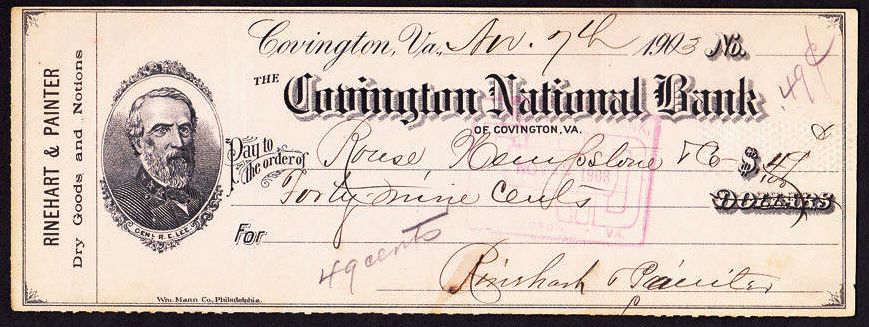 RINEHART & PAINTER
Dry Goods and Notions
GENL R. E. LEE.
Covington, Va., Nov. 7th 1903 No.
49¢
THE
Covington National Bank
OF COVINGTON, VA.
Pay to the order of Rouse Hempstone & Co $ 49/100
Forty nine cents DOLLARS
1903
VA.
For
49 cents
Rinehart & Painter
Wm. Mann Co., Philadelphia.